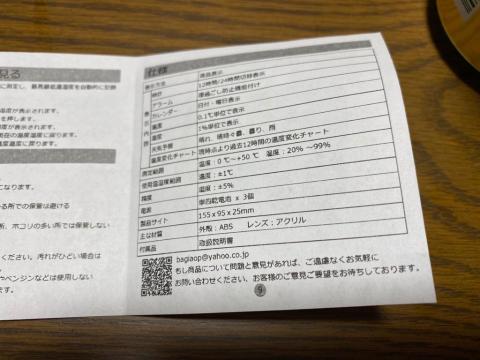 見る
に測定し、最高最低温湿度を自動的に記録
温度が表示されます。
を押します。
湿度が表示されます。
現在の温度湿度に戻ります。
温度湿度に戻ります。
になります。
る所での保管は避ける
所、ホコリの多い所では保管しない
ください。汚れがひどい場合は
ーやベンジンなどは使用しない
仕様
表示方法 液晶表示
表示内容
時計 12時間/24時間切替表示
アラーム 寝過ごし防止機能付け
カレンダー 日付・曜日表示
温度 0.1℃単位で表示
湿度 1%単位で表示
天気予報 晴れ、晴時々曇、曇り、雨
温度変化チャート 現時点より過去12時間の温度変化チャート
測定範囲
使用温湿度範囲 温度:0℃~+50℃ 湿度:20%~99%
精度 温度:±1℃
湿度:±5%
電源 単四乾電池 x 3個
製品サイト 155 x 95 x 25mm
主な材質 外殻:ABS レンズ:アクリル
付属品 取扱説明書
bagiaop@yahoo.co.jp
もし商品について問題と意見があれば、ご遠慮なくお気軽に
お問い合わせください、お客様のご意見ご要望をお待ちしております。
9